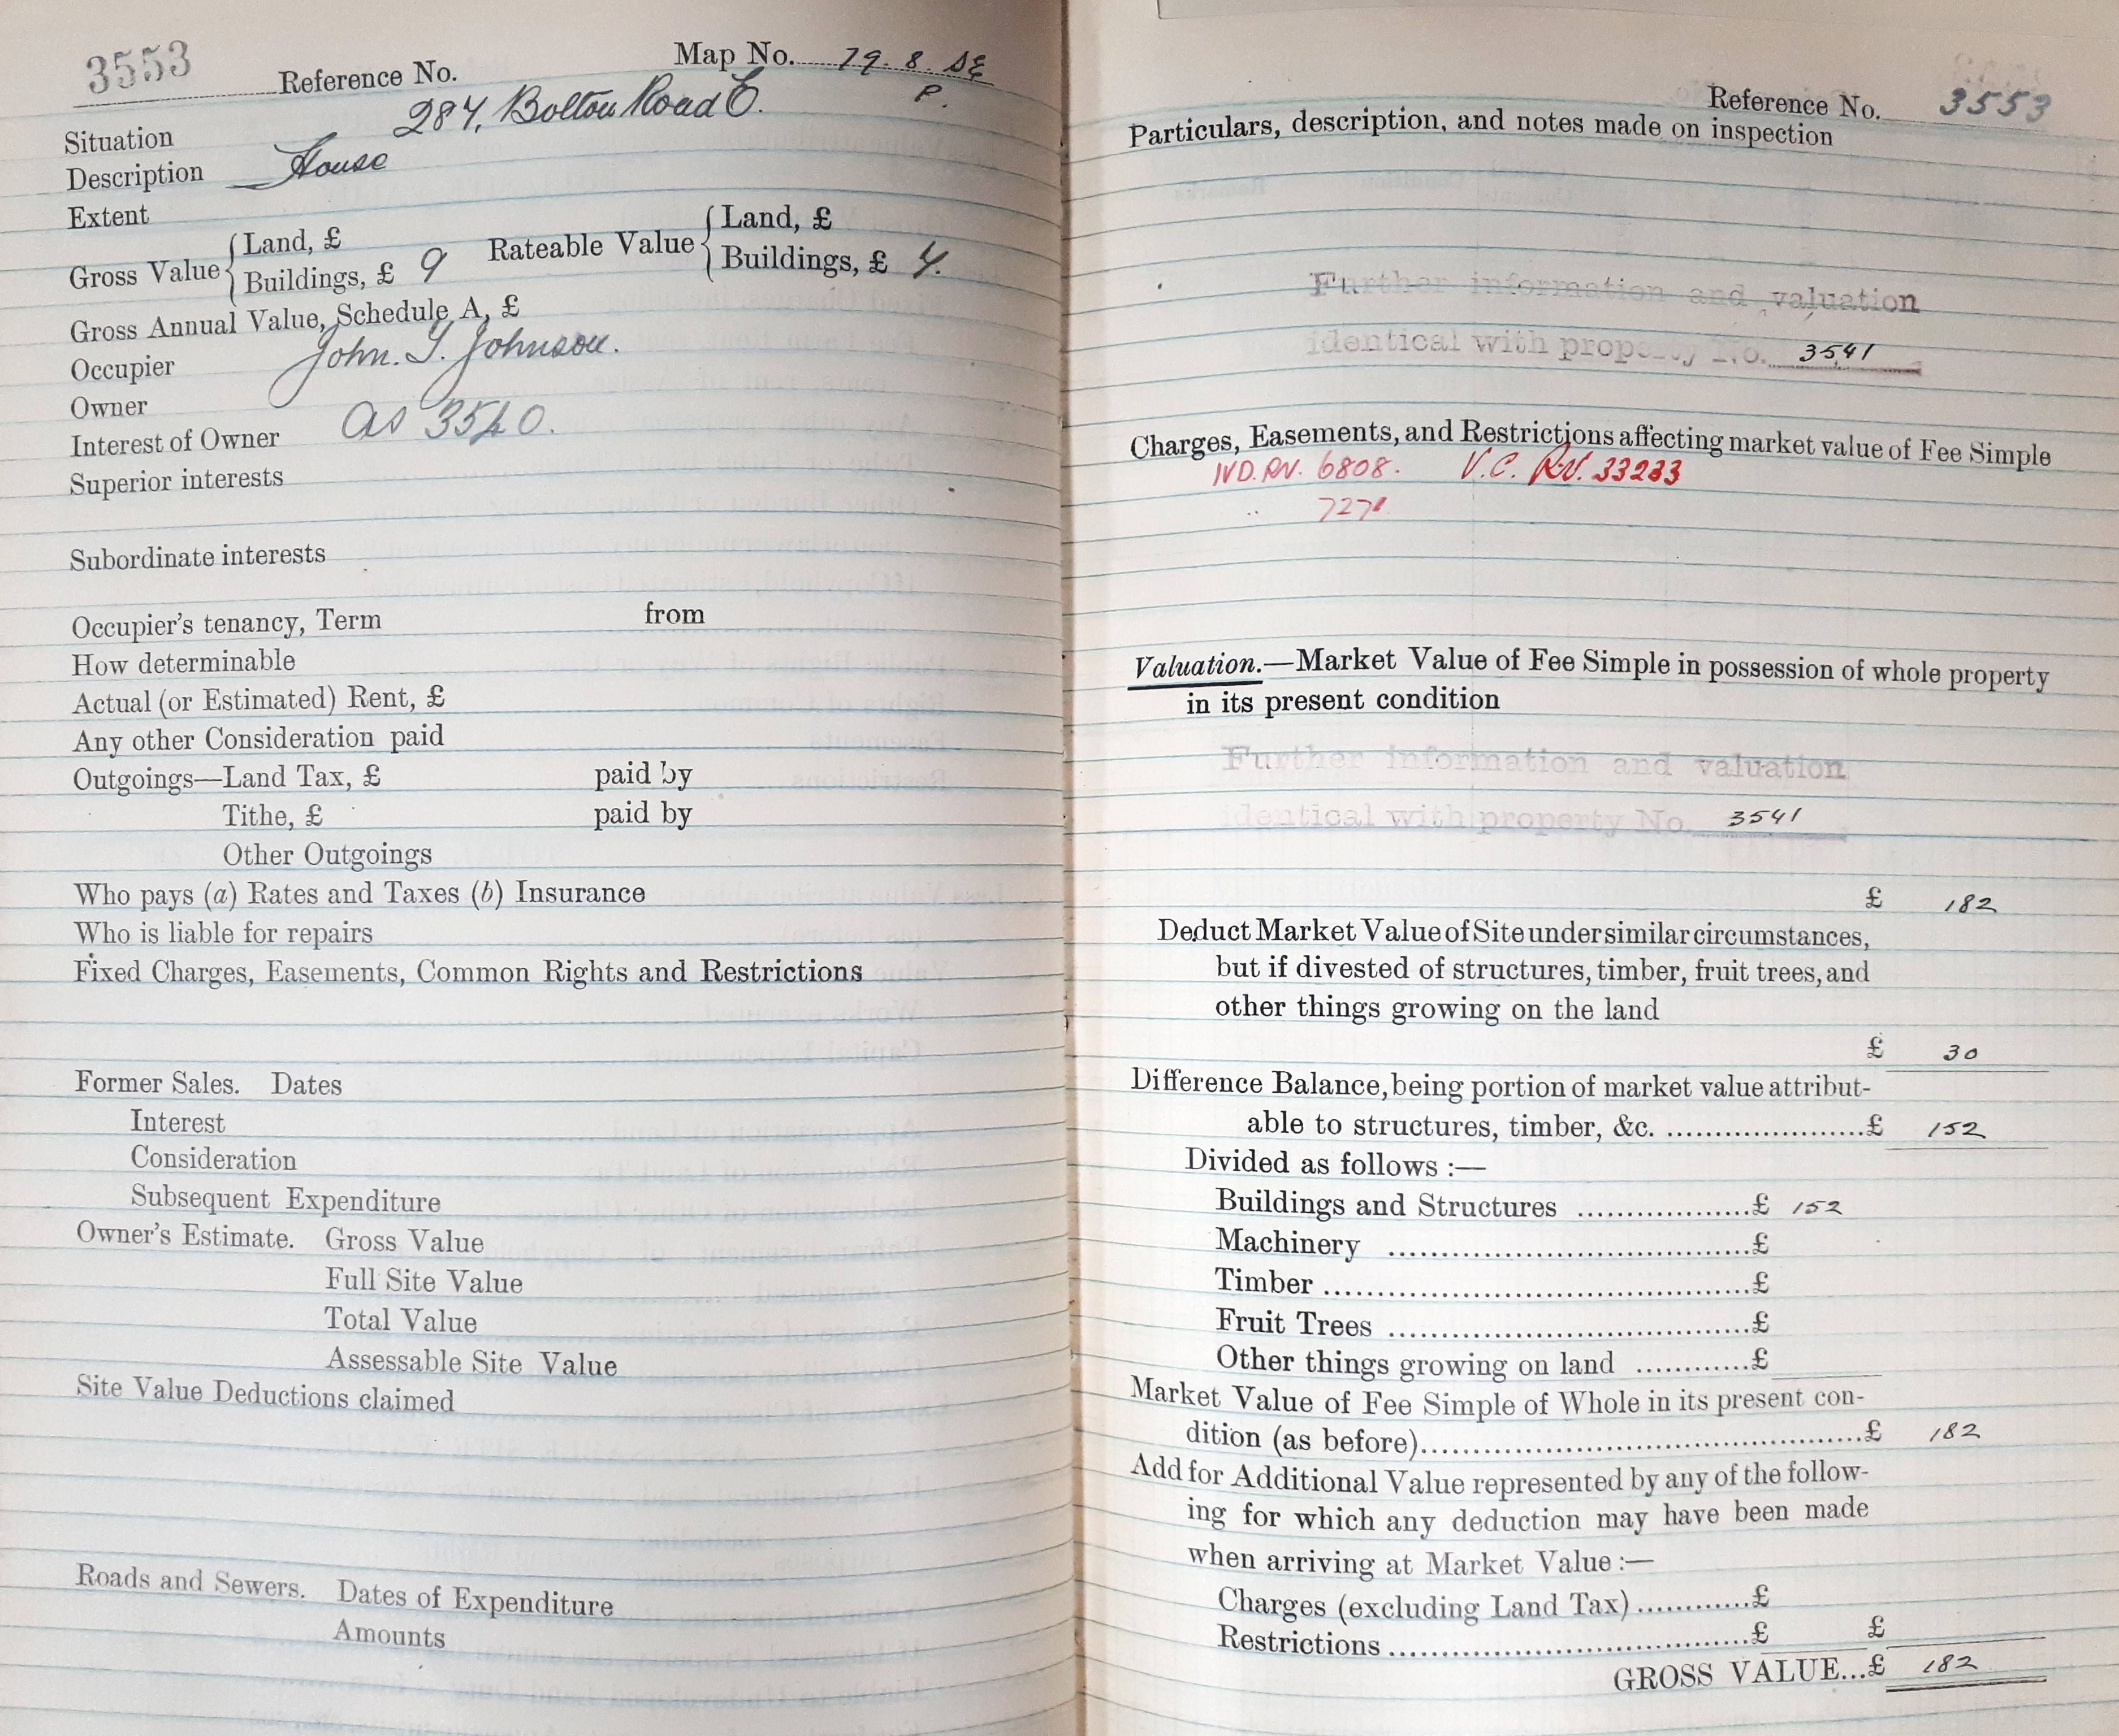 3553 Reference No. Map No. 79. 8. SE
P.
Situation 284, Bolton Road E.
Description House
Extent
Gross Value { Land, £
Buildings, £ 9 Rateable Value { Land, £
Buildings, £ 4.
Gross Annual Value, Schedule A, £
Occupier John. T. Johnson.
Owner
Interest of Owner as 3540.
Superior interests
Subordinate interests
Occupier's tenancy, Term from
How determinable
Actual (or Estimated) Rent, £
Any other Consideration paid
Outgoings—Land Tax, £ paid by
Tithe, £ paid by
Other Outgoings
Who pays (a) Rates and Taxes (b) Insurance
Who is liable for repairs
Fixed Charges, Easements, Common Rights and Restrictions
Former Sales. Dates
Interest
Consideration
Subsequent Expenditure
Owner's Estimate. Gross Value
Full Site Value
Total Value
Assessable Site Value
Site Value Deductions claimed
Roads and Sewers. Dates of Expenditure
Amounts
Reference No. 3553
Particulars, description, and notes made on inspection
Further information and valuation
identical with property No. 3541
Charges, Easements, and Restrictions affecting market value of Fee Simple
IVD. RN. 6808. V.C. RN. 33233
.. 7271
Valuation.—Market Value of Fee Simple in possession of whole property
in its present condition
Further information and valuation
identical with property No. 3541
£ 182
Deduct Market Value of Site under similar circumstances,
but if divested of structures, timber, fruit trees, and
other things growing on the land
£ 30
Difference Balance, being portion of market value attribut-
able to structures, timber, &c. ......................£ 152
Divided as follows :—
Buildings and Structures ...................£ 152
Machinery ......................................£
Timber .............................................£
Fruit Trees ......................................£
Other things growing on land ............£
Market Value of Fee Simple of Whole in its present con-
dition (as before)...............................................£ 182
Add for Additional Value represented by any of the follow-
ing for which any deduction may have been made
when arriving at Market Value :—
Charges (excluding Land Tax) ............£
Restrictions ......................................£ £
GROSS VALUE...£ 182